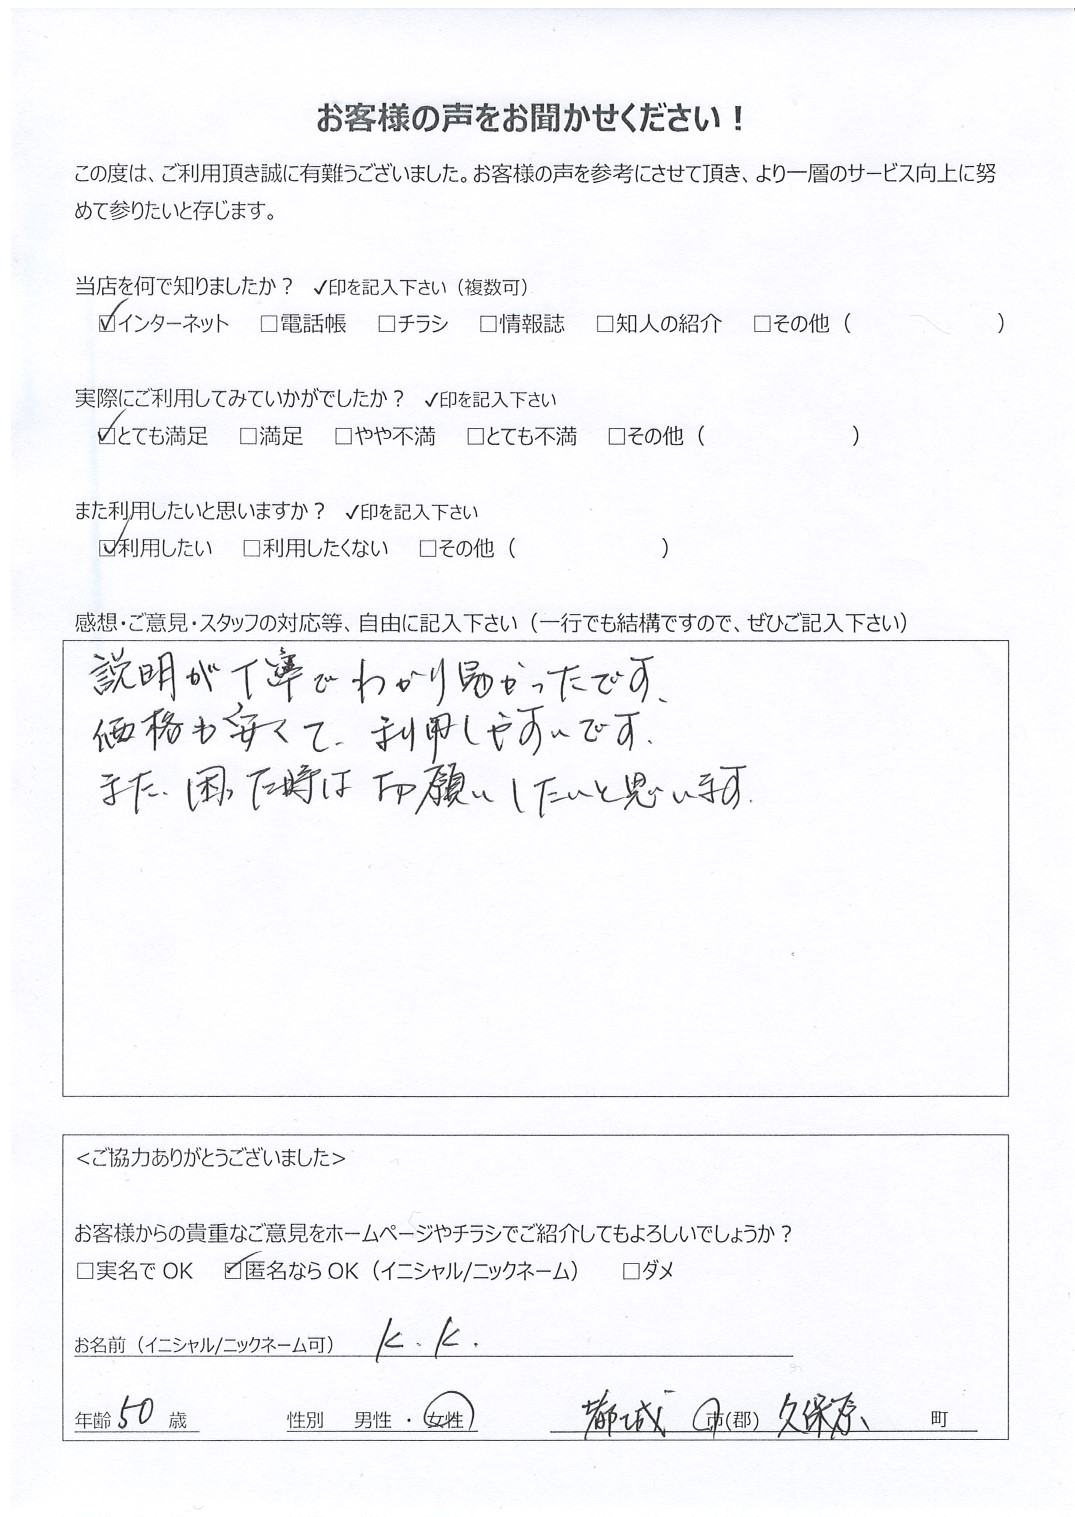 お客様の声をお聞かせください！
この度は、ご利用頂き誠に有難うございました。お客様の声を参考にさせて頂き、より一層のサービス向上に努
めて参りたいと存じます。
当店を何で知りましたか？ ✓印を記入下さい（複数可）
☑インターネット □電話帳 □チラシ □情報誌 □知人の紹介 □その他（ ）
実際にご利用してみていかがでしたか？ ✓印を記入下さい
☑とても満足 □満足 □やや不満 □とても不満 □その他（ ）
また利用したいと思いますか？ ✓印を記入下さい
☑利用したい □利用したくない □その他（ ）
感想・ご意見・スタッフの対応等、自由に記入下さい（一行でも結構ですので、ぜひご記入下さい）
説明が丁寧でわかり易かったです、
価格も安くて、利用しやすいです、
また、困った時はお願いしたいと思います、
＜ご協力ありがとうございました＞
お客様からの貴重なご意見をホームページやチラシでご紹介してもよろしいでしょうか？
□実名で OK ☑匿名なら OK（イニシャル/ニックネーム） □ダメ
お名前（イニシャル/ニックネーム可） K.K.
年齢 50 歳 性別 男性 ・ 女性 都城 市(郡) 久保原 町